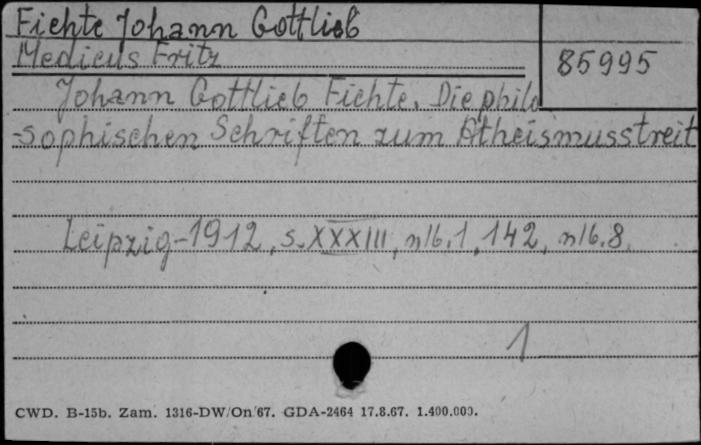 Fichte Johann Gottlieb
Medicus Fritz
85995
Johann Gottlieb Fichte. Die philo
-sophischen Schriften zum Atheismusstreit
Leipzig-1912, s. XXXIII, nlb.1, 142, nlb.8.
1
CWD. B-15b. Zam. 1316-DW/On/67. GDA-2464 17.8.67. 1.400.000.